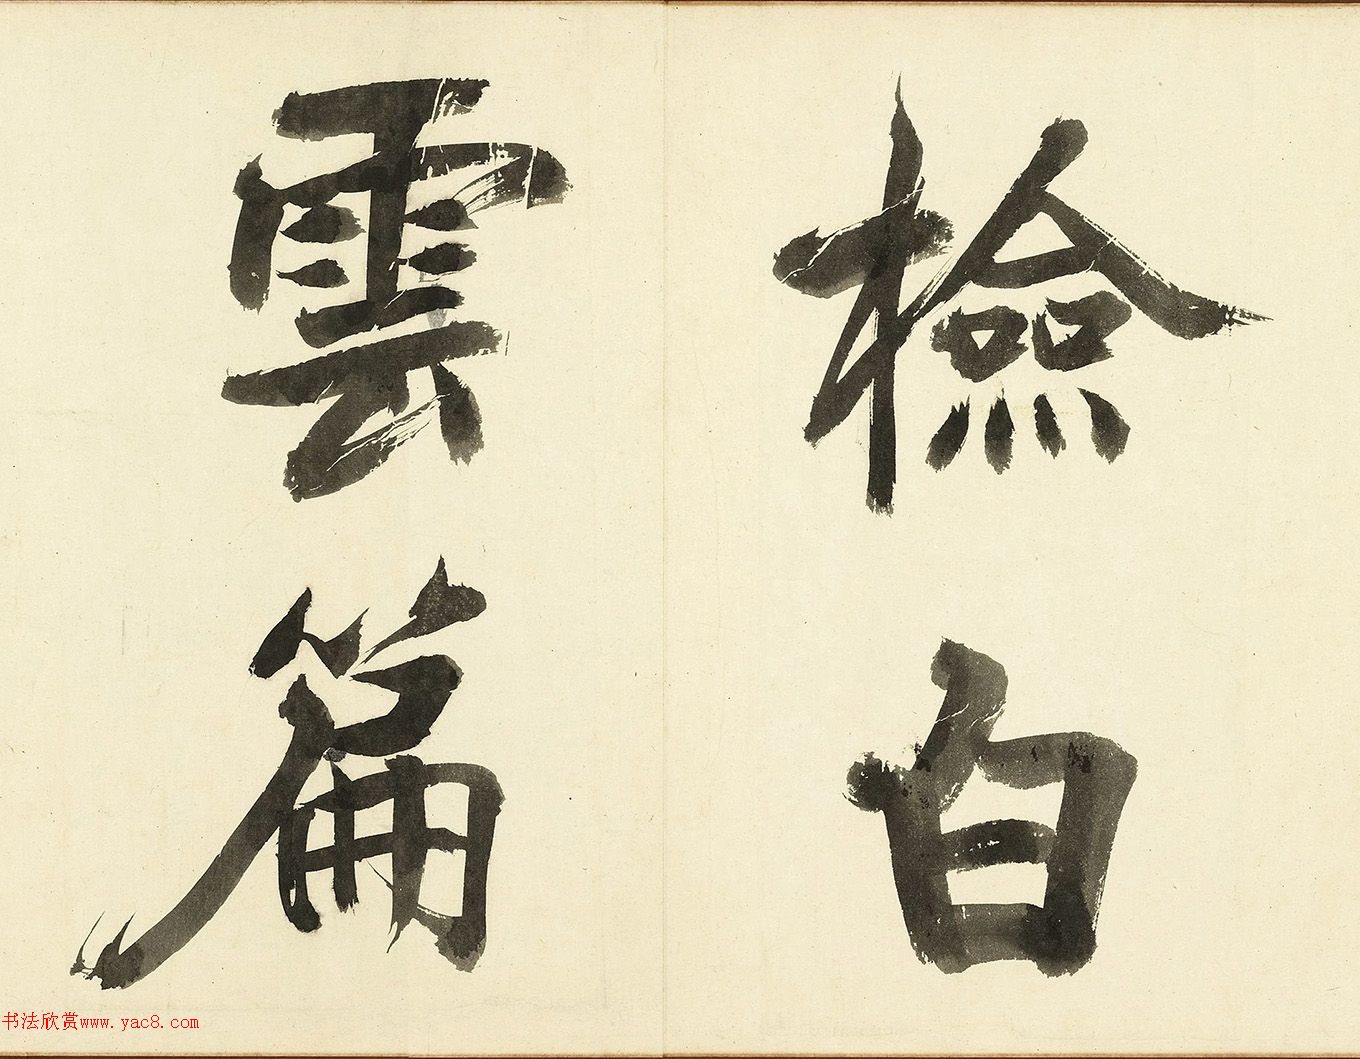 檢白
雲篇
书法欣赏www.yac8.com